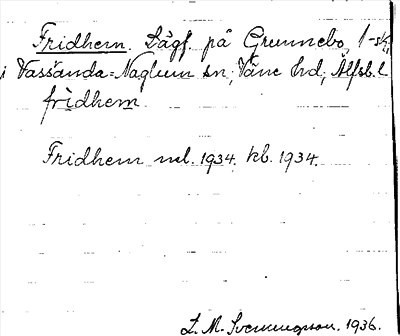 Fridhem. Lägf. på Grunnebo, 1-sk,
i Vassända-Naglum sn, Väne hd, Älfsb. l.
frìdhem.
Fridhem ml. 1934. kb. 1934.
L. M. Svenungsson. 1936.